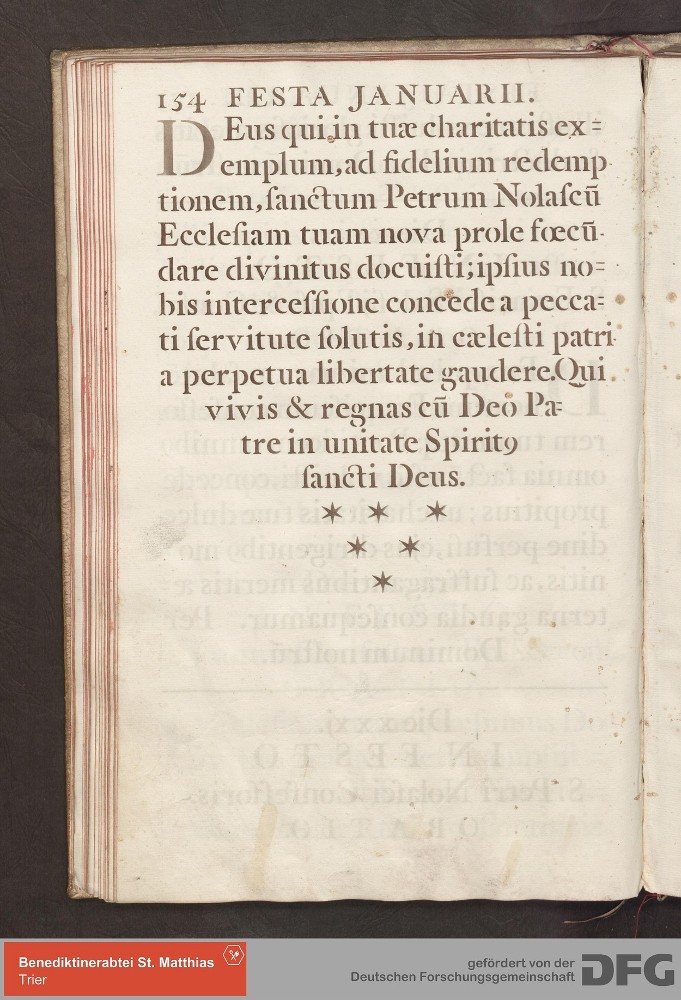 154 FESTA JANUARII.
DEus qui in tuæ charitatis ex=
emplum, ad fidelium redemp-
tionem, ſanctum Petrum Nolaſcũ
Eccleſiam tuam nova prole fœcũ-
dare divinitus docuiſti; ipſius no=
bis interceſſione concede a pecca=
ti ſervitute ſolutis, in cæleſti patri-
a perpetua libertate gaudere. Qui
vivis & regnas cũ Deo Pa=
tre in unitate Spiritꝯ
ſancti Deus.
✶ ✶ ✶
✶ ✶
✶
Benediktinerabtei St. Matthias
Trier
gefördert von der
Deutschen Forschungsgemeinschaft
DFG